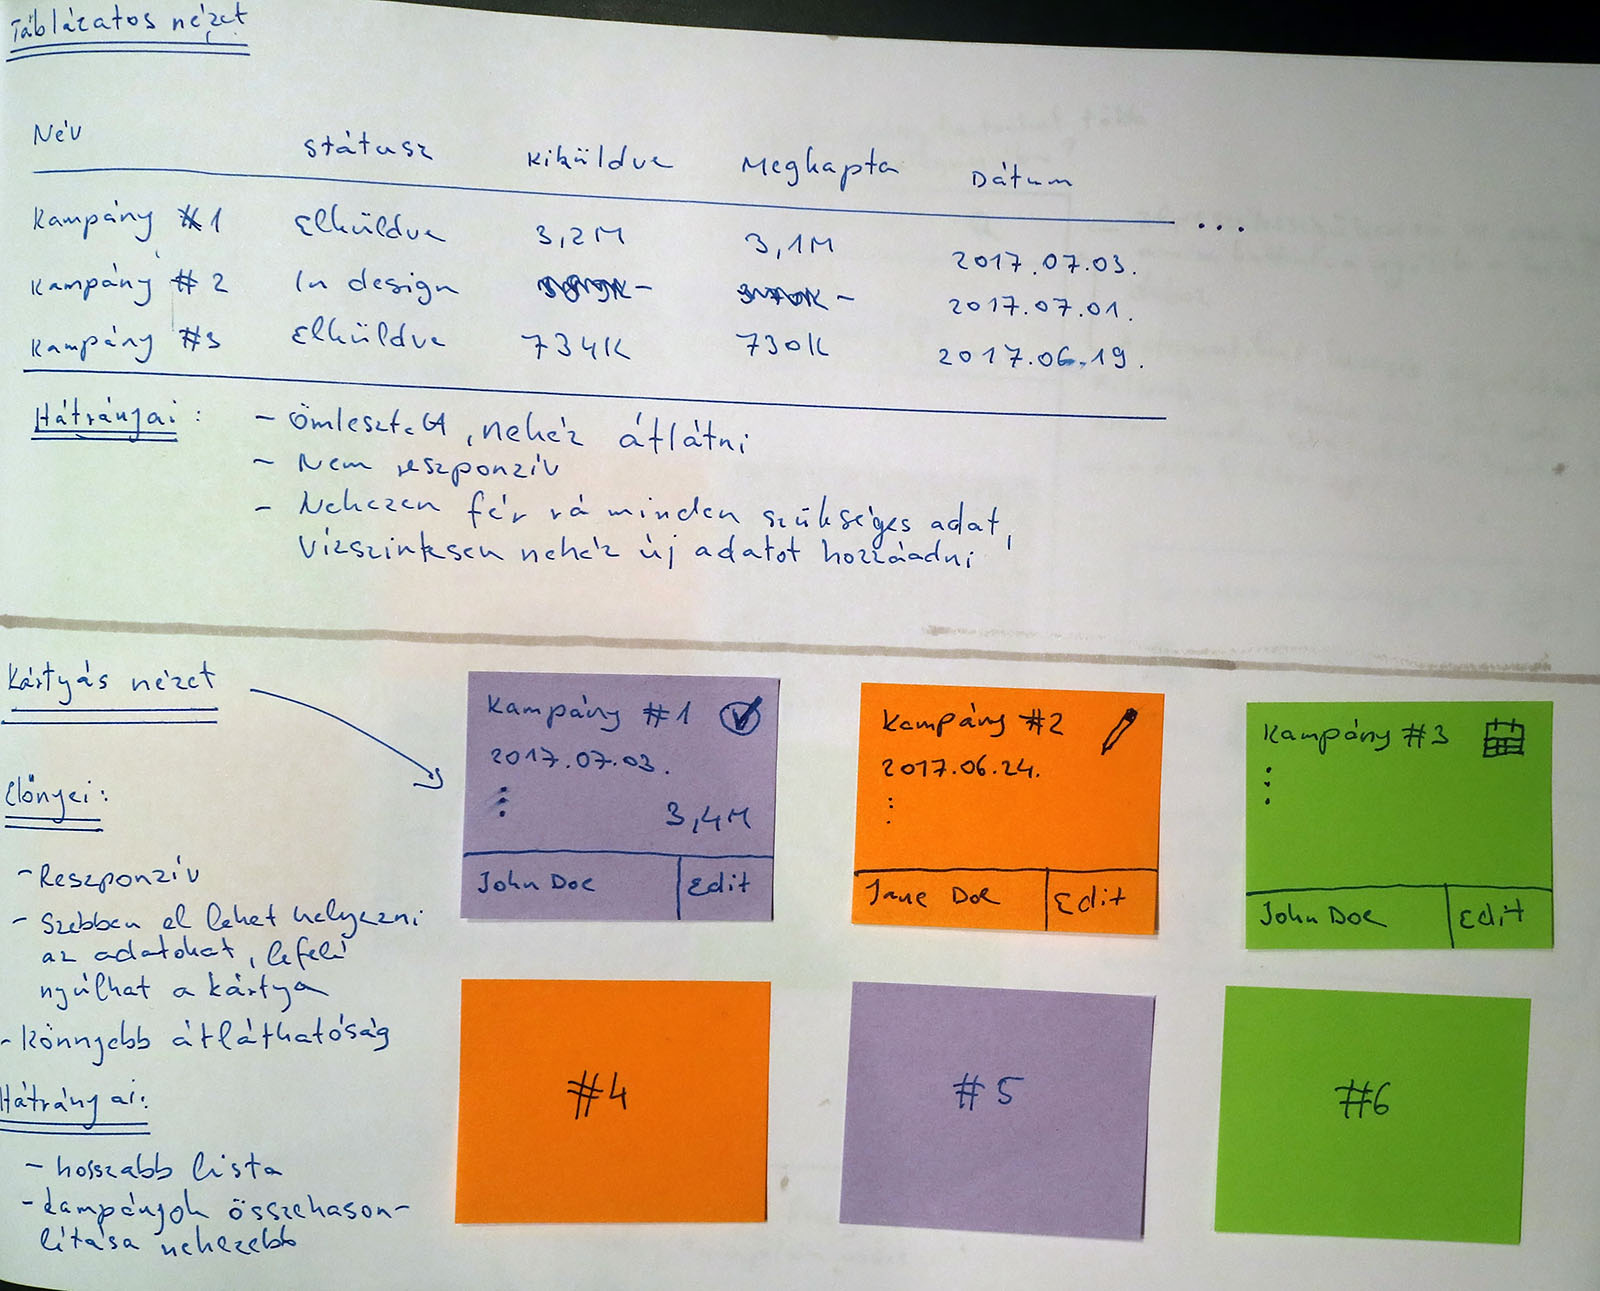 Táblázatos nézet
Név státusz Kiküldve Megkapta Dátum
Kampány #1 Elküldve 3,2M 3,1M 2017.07.03. ...
Kampány #2 In design - - 2017.07.01.
Kampány #3 Elküldve 734K 730K 2017.06.19.
Hátrányai: - Ömlesztett, nehéz átlátni
- Nem reszponzív
- Nehezen fér rá minden szükséges adat,
vízszintesen nehéz új adatot hozzáadni
Kártyás nézet
Előnyei:
- Reszponzív
- Szebben el lehet helyezni
az adatokat, lefelé
nyúlhat a kártya
- Könnyebb átláthatóság
Hátrányai:
- hosszabb lista
- kampányok összehason-
lítása nehezebb
Kampány #1
2017.07.03.
3,4M
John Doe Edit
Kampány #2
2017.06.24.
Jane Doe Edit
Kampány #3
John Doe Edit
#4
#5
#6